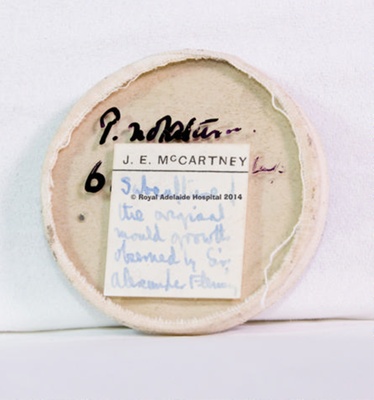 P. notatum.
J. E. McCARTNEY
6
Subculture of
© Royal Adelaide Hospital 2014
the original
mould growth
observed by Sir
Alexander Fleming